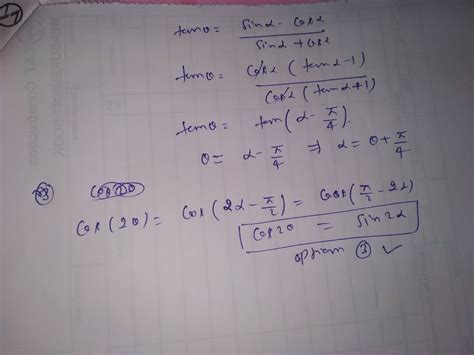 tanθ = (sinα - cosα)/(sinα + cosα)
tanθ = cosα (tanα - 1)/cosα (tanα + 1)
tanθ = tan(α - π/4).
θ = α - π/4 ⇒ α = θ + π/4
cos(2θ) = cos(2α - π/2) = cos(π/2 - 2α)
cos2θ = sin2α
option ③ ✓